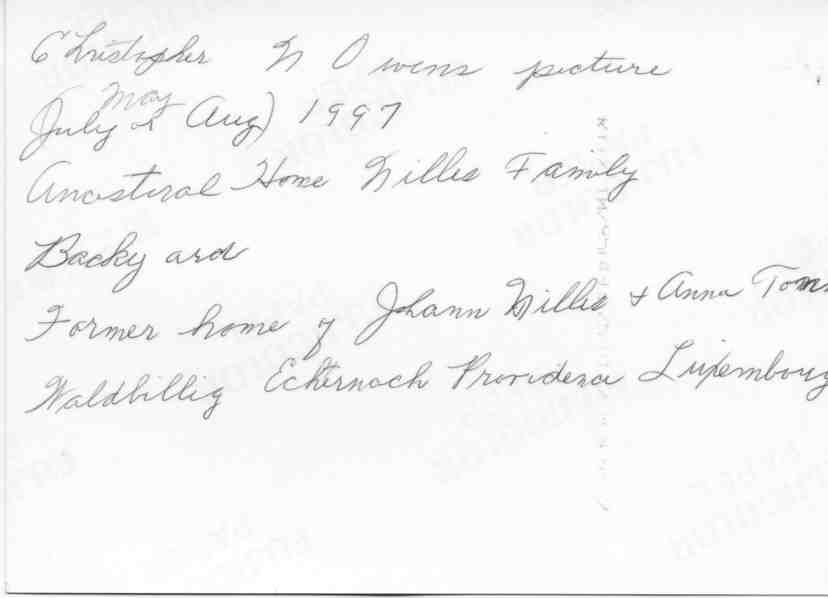 Christopher N Owens picture
May
(July or Aug) 1997
Ancestiral Home Nilles Family
Backyard
Former home of Johann Nilles + Anna
Waldbillig Echternach Providence Luxembourg